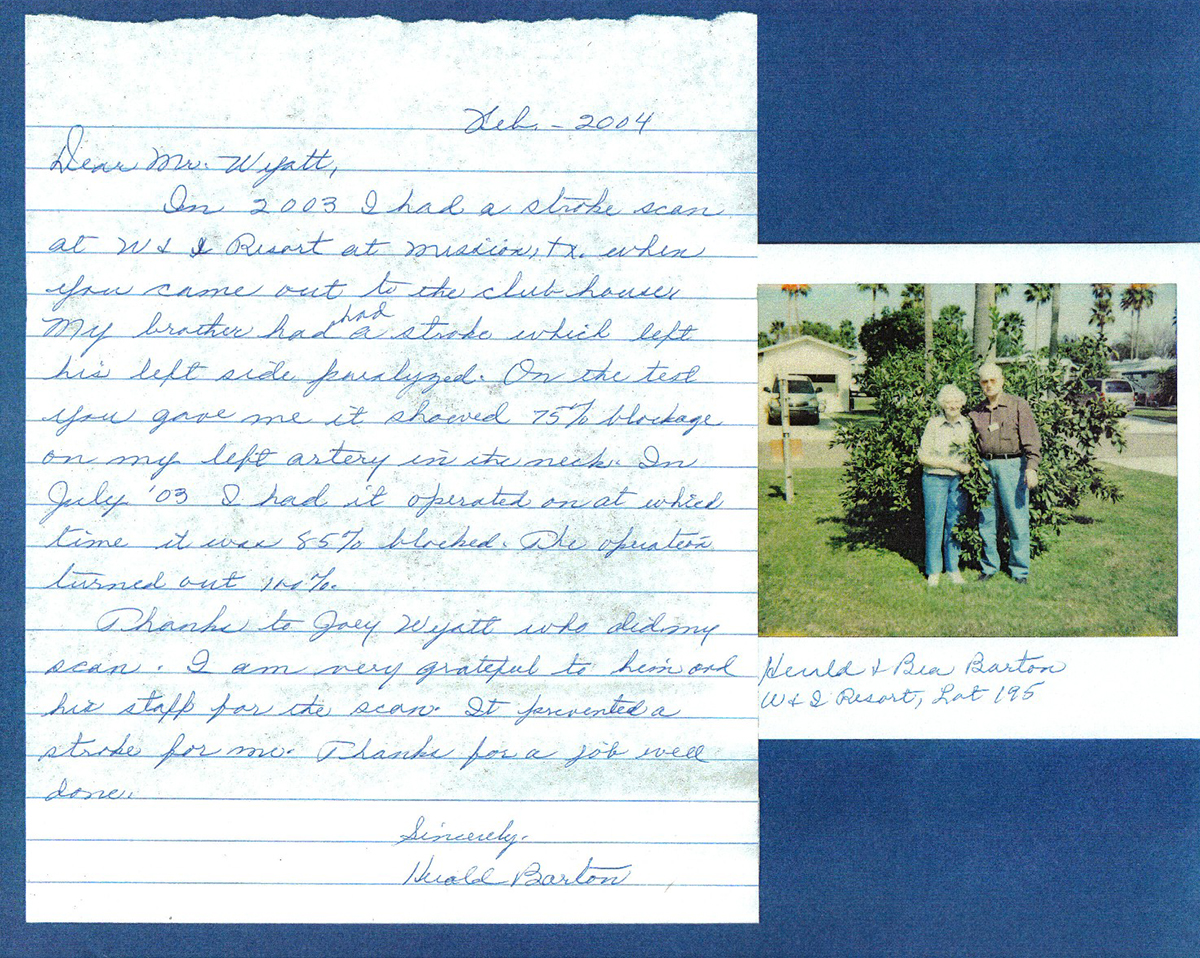 Feb. - 2004
Dear Mr. Wyatt,
In 2003 I had a stroke scan
at W & I Resort at Mission, Tx. when
you came out to the club house.
My brother had had a stroke which left
his left side paralyzed. On the test
you gave me it showed 75% blockage
on my left artery in the neck. In
July '03 I had it operated on at which
time it was 85% blocked. The operation
turned out 100%.
Thanks to Joey Wyatt who did my
scan. I am very grateful to him and
his staff for the scan. It prevented a
stroke for me. Thanks for a job well
done.
Sincerely.
Herald Barton
Herald & Bea Barton
W & I Resort, Lot 195